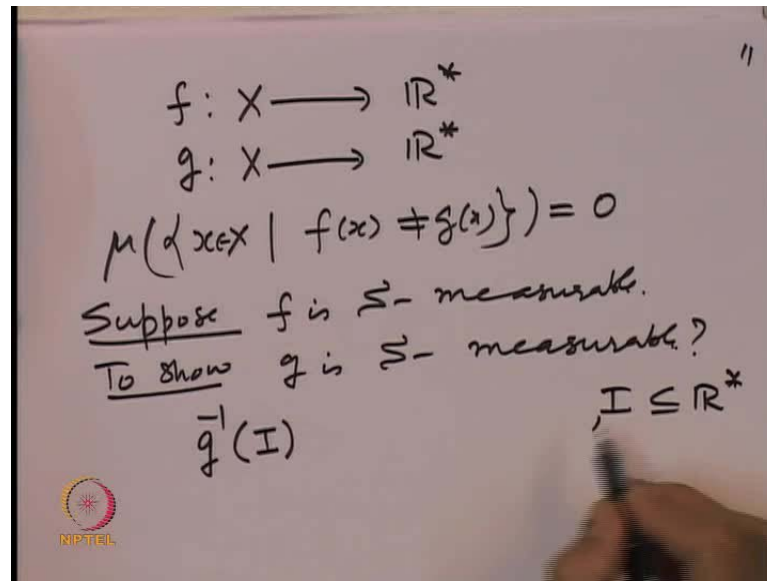 11
f: X ⟶ ℝ*
g: X ⟶ ℝ*
μ({x∈X | f(x) ≠ g(x)}) = 0
Suppose f is S- measurable.
To show g is S- measurable?
g⁻¹(I) , I ⊆ ℝ*
NPTEL